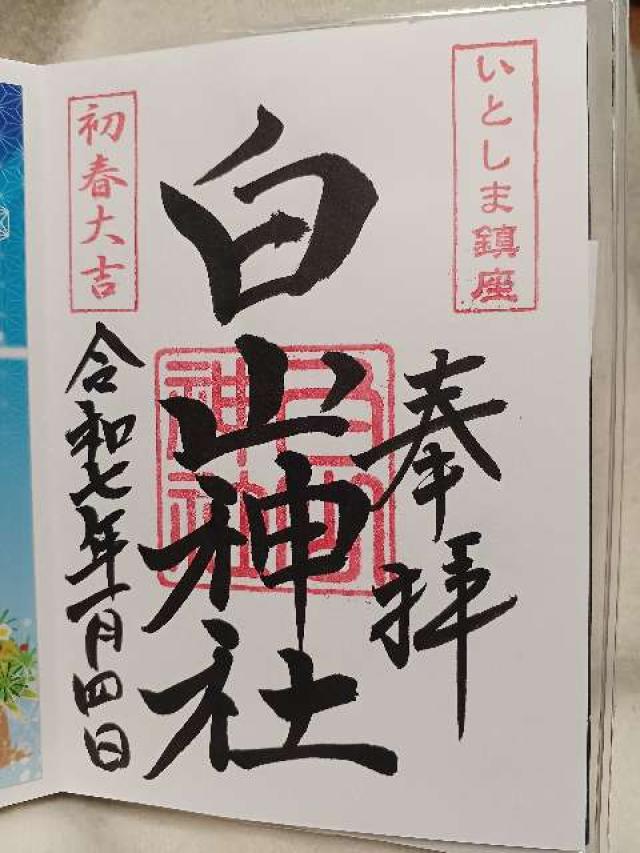 いとしま鎮座
奉拝
白山神社
白山神社
初春大吉
令和七年一月四日